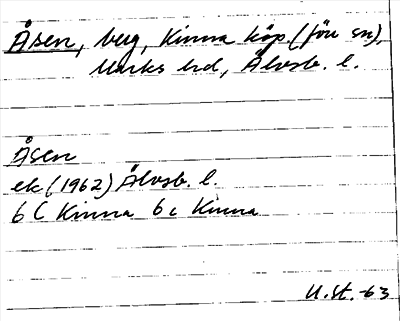 Åsen, berg, Kinna köp (förr sn),
Marks hd, Älvsb. l.
Åsen
ek (1962) Älvsb. l.
6 C Kinna 6 c Kinna
U. St. -63